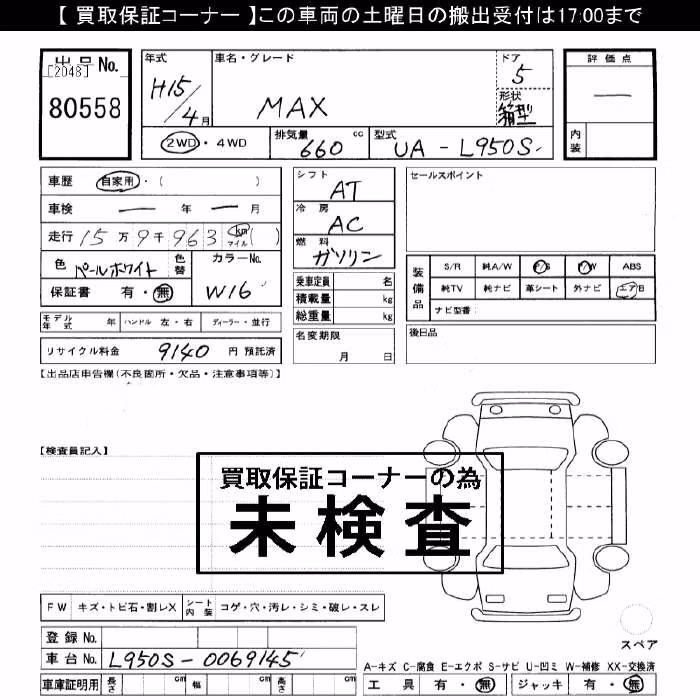 【 買取保証コーナー 】この車両の土曜日の搬出受付は17:00まで
出品 No.
[2048]
80558
年式
H15/4月
車名・グレード
MAX
ドア
5
形状
箱型
評価点
—
内装
2WD・4WD
排気量 660 cc
型式 UA-L950S
車歴 自家用・( )
車検 — 年 — 月
走行 15万9千963 km マイル ( )
色 パールホワイト
色替
カラーNo.
W16
保証書 有・無
モデル年式 年
ハンドル 左・右
ディーラー・並行
リサイクル料金 9140 円 預託済
シフト
AT
冷房
AC
燃料
ガソリン
乗車定員 名
積載量 kg
総重量 kg
名変期限
月 日
セールスポイント
装備品
S/R 純A/W P/S P/W ABS
純TV 純ナビ 革シート 外ナビ エアB
ナビ型番:
後日品
【出品店申告欄(不良箇所・欠品・注意事項等)】
【検査員記入】
買取保証コーナーの為
未検査
FW キズ・トビ石・割レX
シート内装 コゲ・穴・汚レ・シミ・破レ・スレ
登録 No.
車台 No. L950S-0069145
車庫証明用 長さ cm 幅 cm 高さ cm
スペア
A-キズ C-腐食 E-エクボ S-サビ U-凹ミ W-補修 XX-交換済
工具 有・無 ジャッキ 有・無